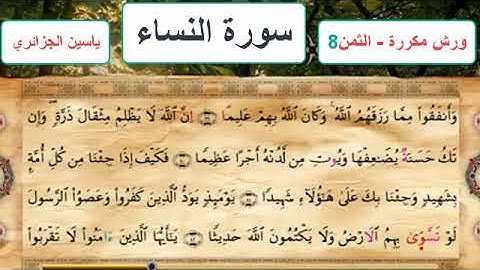 ورش مكررة - الثمن8
سورة النساء
ياسين الجزائري
وَأَنفَقُوا۟ مِمَّا رَزَقَهُمُ ٱللَّهُ ۚ وَكَانَ ٱللَّهُ بِهِمْ عَلِيمًا ۝ إِنَّ ٱللَّهَ لَا يَظْلِمُ مِثْقَالَ ذَرَّةٍ ۖ وَإِن
تَكُ حَسَنَةٌ يُضَٰعِفْهَا وَيُوتِ مِن لَّدُنْهُ أَجْرًا عَظِيمًا ۝ فَكَيْفَ إِذَا جِئْنَا مِن كُلِّ أُمَّةٍۭ
بِشَهِيدٍ وَجِئْنَا بِكَ عَلَىٰ هَٰٓؤُلَآءِ شَهِيدًا ۝ يَوْمَئِذٍ يَوَدُّ ٱلَّذِينَ كَفَرُوا۟ وَعَصَوُا۟ ٱلرَّسُولَ
لَوْ تَسَّوَّىٰ بِهِمُ ٱلَارْضُ وَلَا يَكْتُمُونَ ٱللَّهَ حَدِيثًا ۝ يَٰٓأَيُّهَا ٱلَّذِينَ ءَامَنُوا۟ لَا تَقْرَبُوا۟